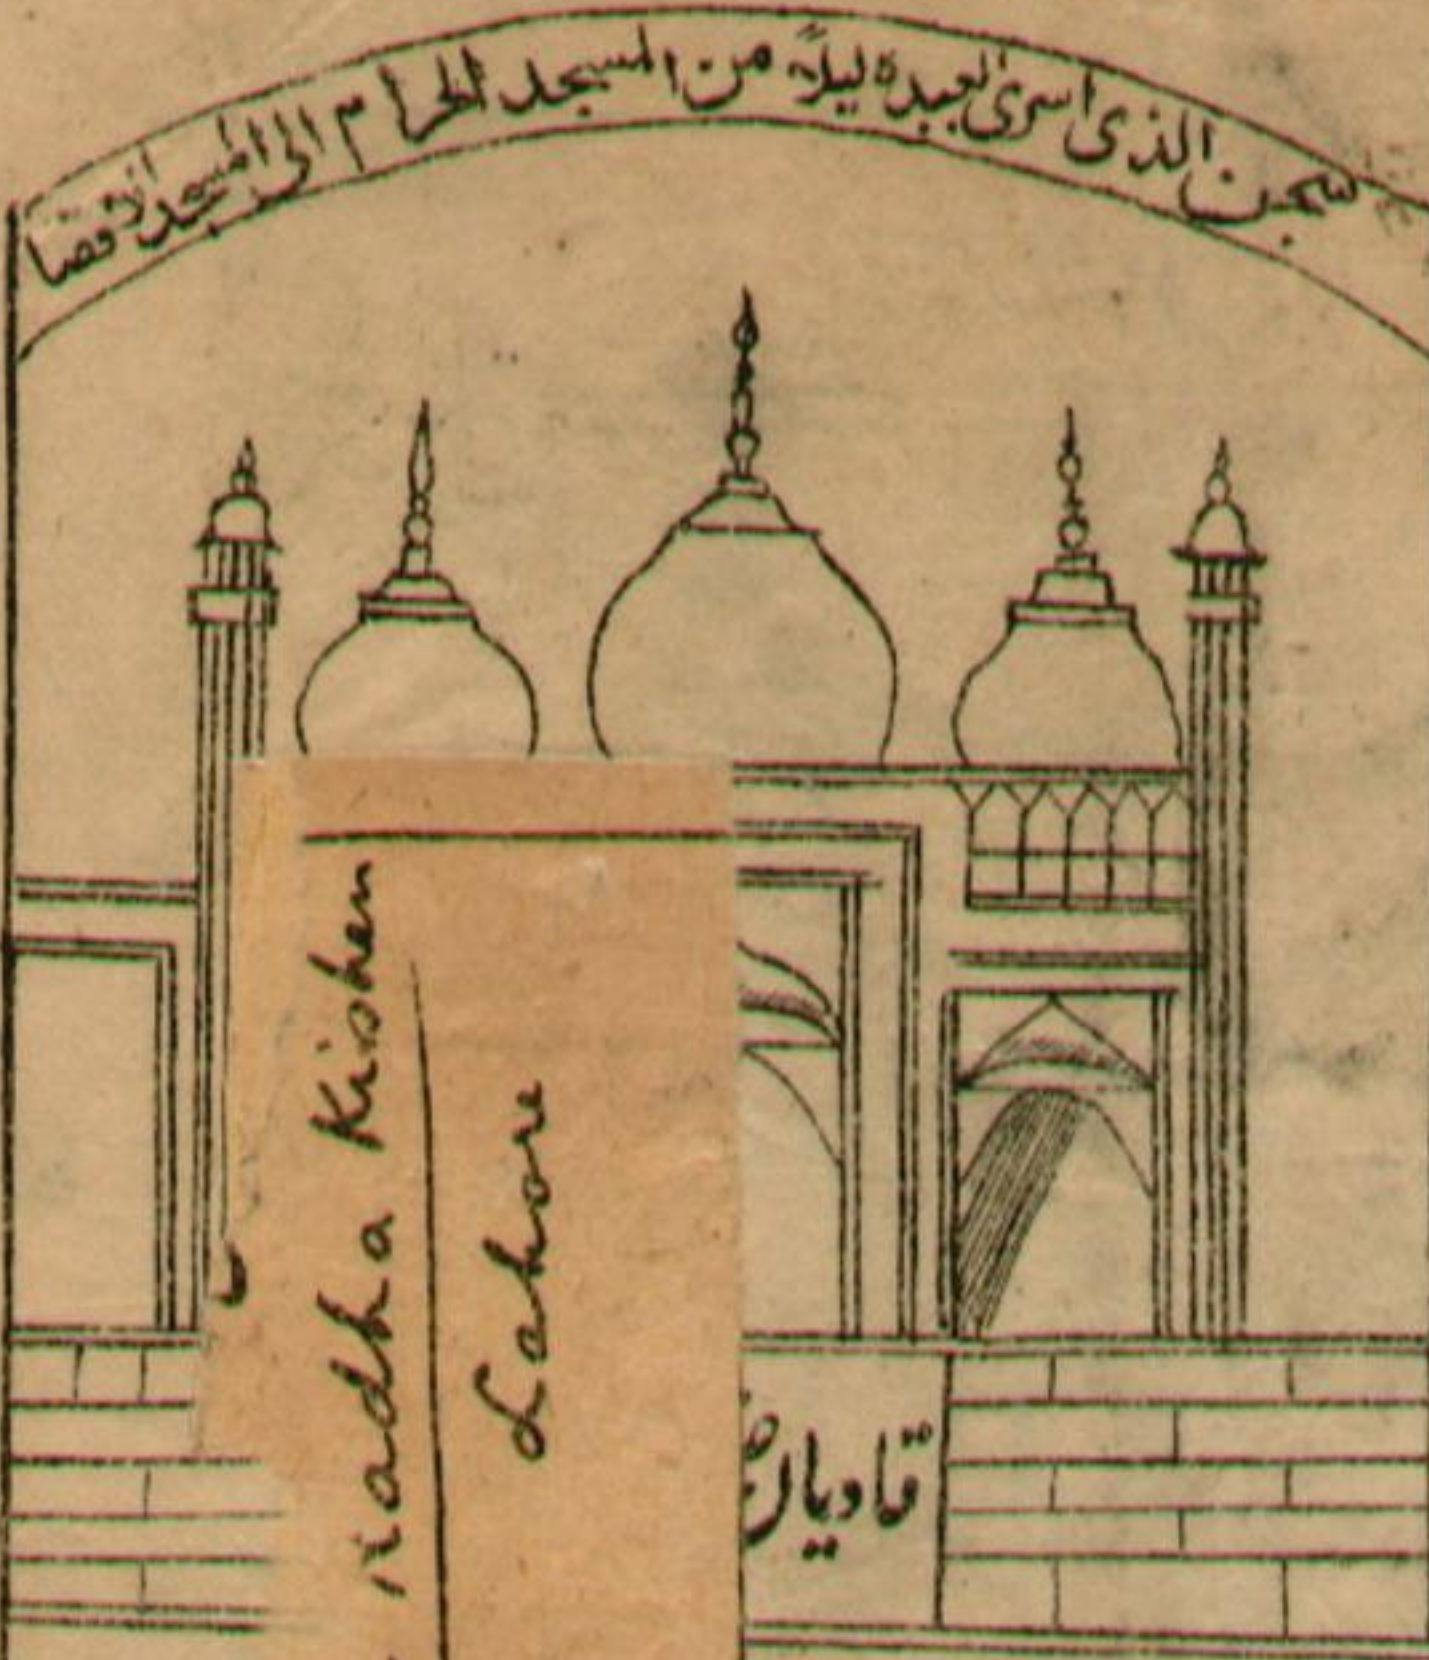 سبحن الذى اسرى لعبده ليلاً من المسجد الحرام الى المسجد الاقصا
Radha Kishen
Lahore
قاديان